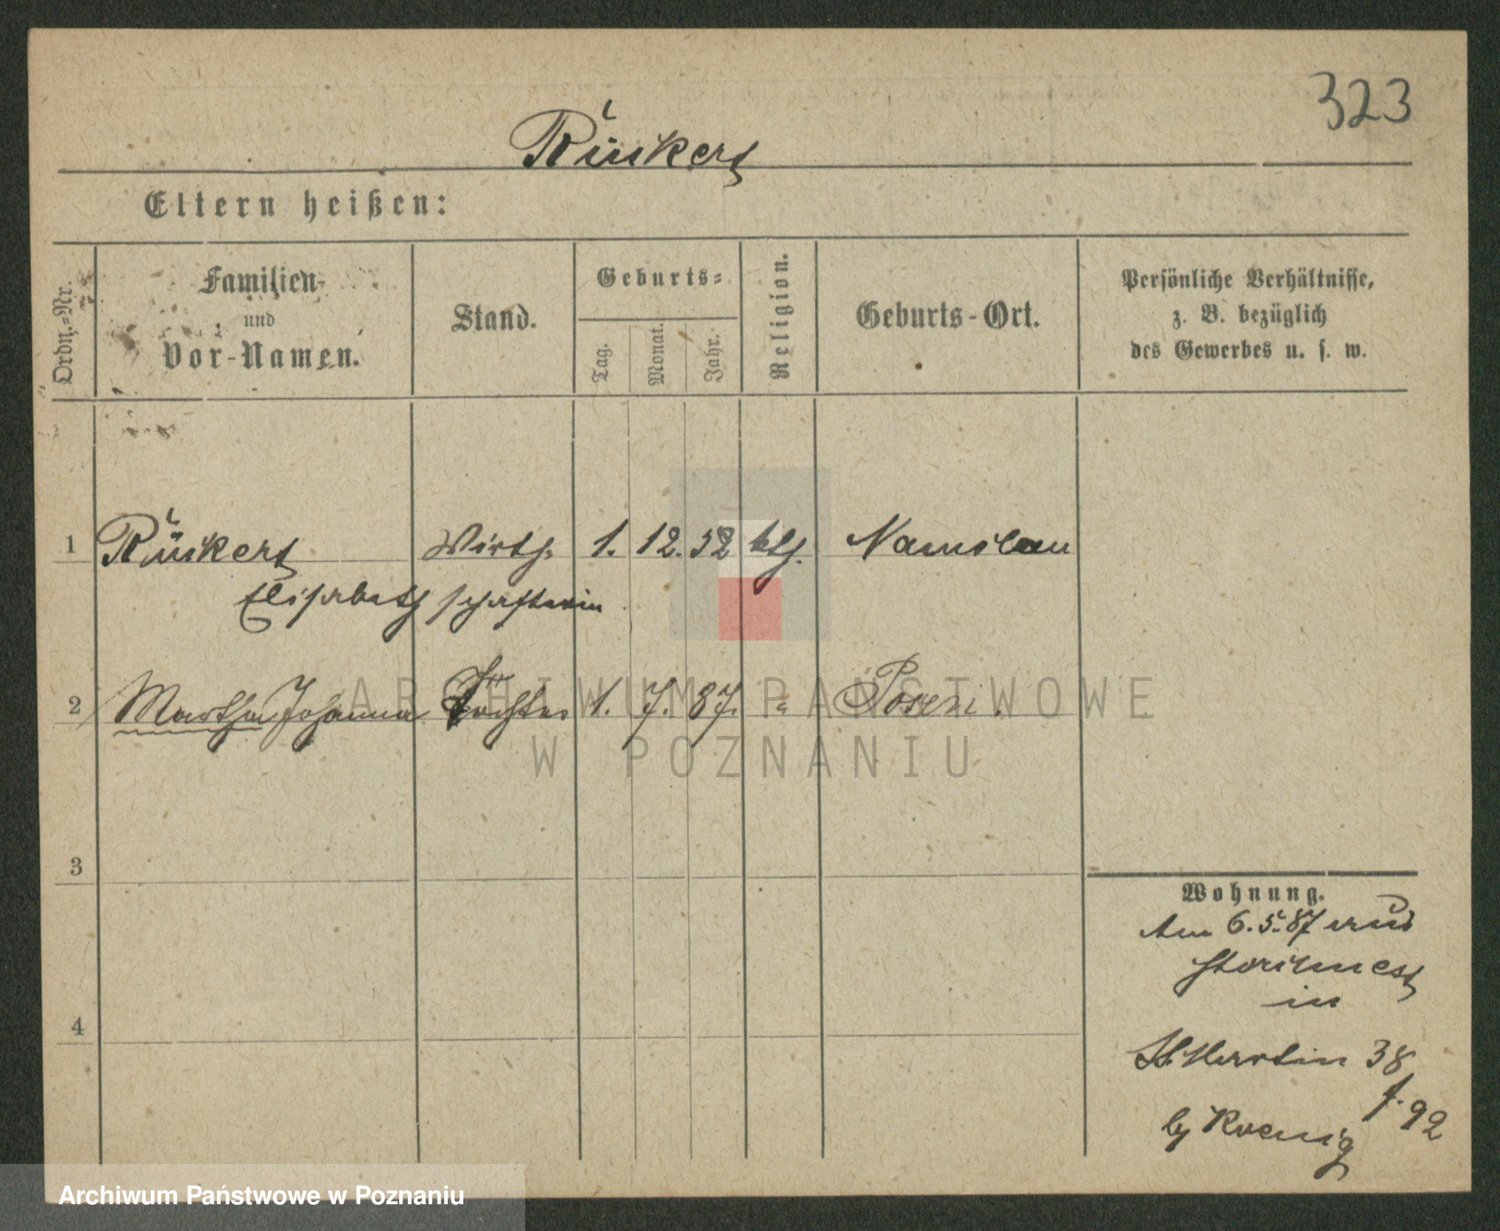 323
Rückert
Eltern heißen:
Ordn.-Nr.
Familien-
und
Vor-Namen.
Stand.
Geburts-
Tag.
Monat.
Jahr.
Religion.
Geburts-Ort.
Persönliche Verhältnisse,
z. B. bezüglich
des Gewerbes u. s. w.
1 Rückert Wirth- 1. 12. 52 kth. Namslau
Elisabeth schafterin
2 Martha Johanna Tochter 1. 7. 87. " Posen.
3
4
Wohnung.
Am 6. 5. 87 aus
in
St. Martin 38
by Koenig
92
ARCHIWUM PAŃSTWOWE
W POZNANIU
Archiwum Państwowe w Poznaniu